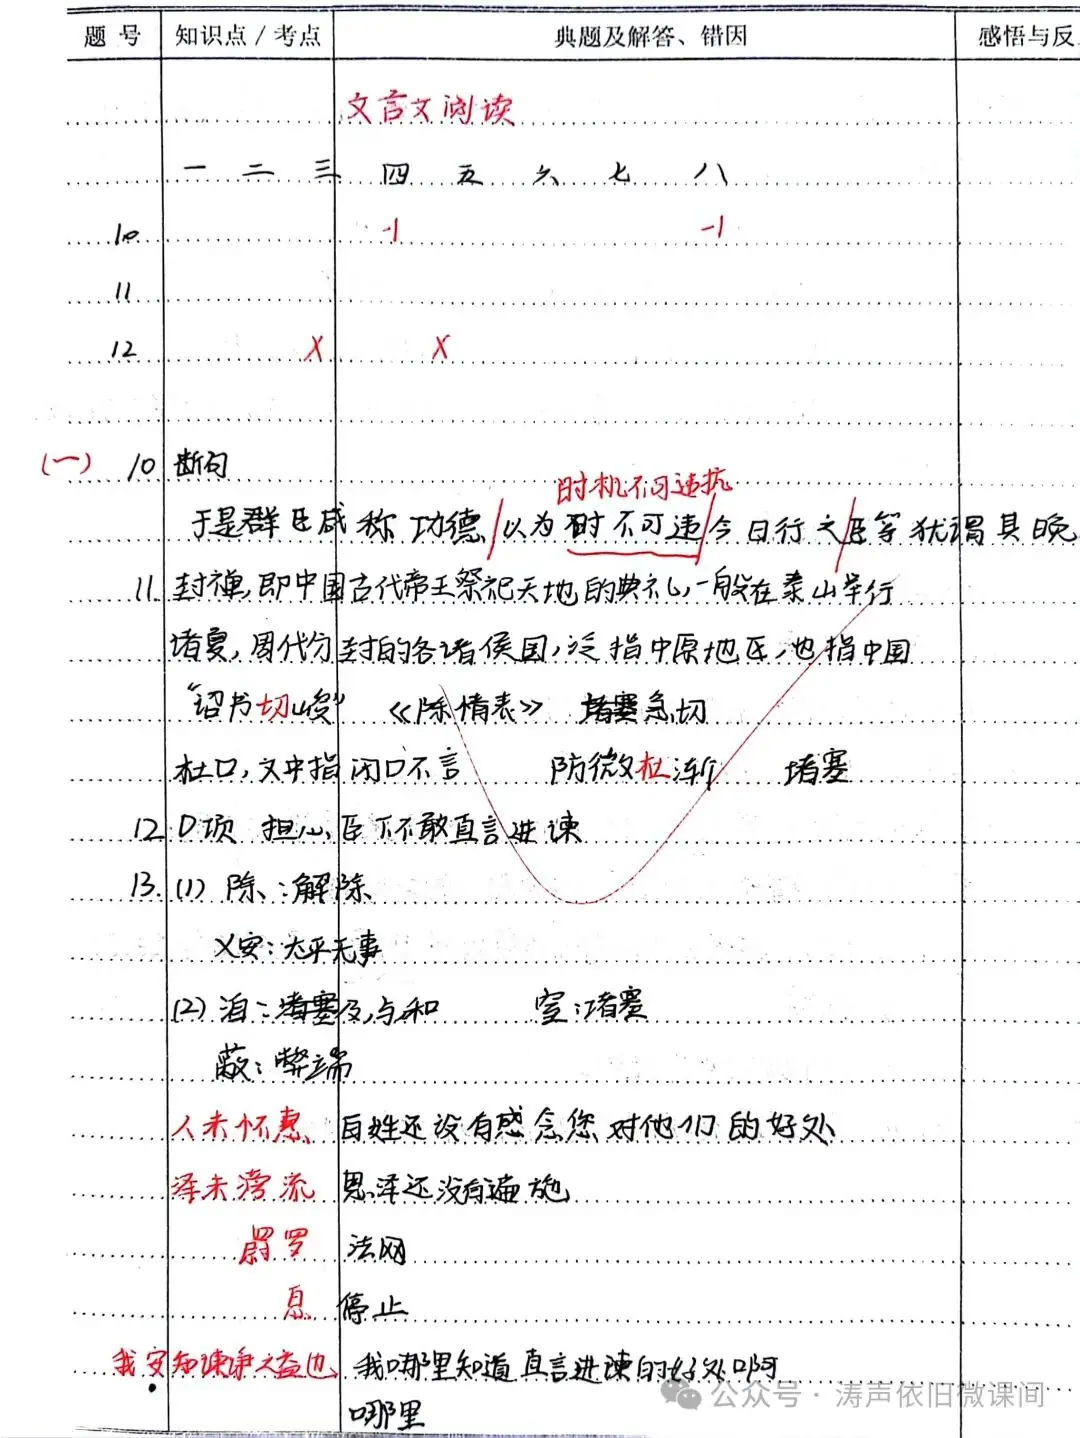 题号 知识点/考点 典题及解答、错因 感悟与反
文言文阅读
一 二 三 四 五 六 七 八
10 -1 -1
11
12 X X
(一) 10 断句
时机不可违抗
于是群臣咸称功德/以为时不可违/今日行之/臣等犹谓其晚
11. 封禅,即中国古代帝王祭祀天地的典礼,一般在泰山举行
诸夏,周代分封的各诸侯国,泛指中原地区,也指中国
“诏书切峻” 《陈情表》 急切
杜口,文中指闭口不言 防微杜渐 堵塞
12. D项 担心臣下不敢直言进谏
13. (1) 除:解除
乂安:太平无事
(2) 洎:及,与和 窒:堵塞
蔽:弊端
人未怀惠 百姓还没有感念您对他们的好处
泽未滂流 恩泽还没有遍施
罻罗 法网
息 停止
我安知谏诤之益也 我哪里知道直言进谏的好处啊
哪里
公众号·涛声依旧微课间